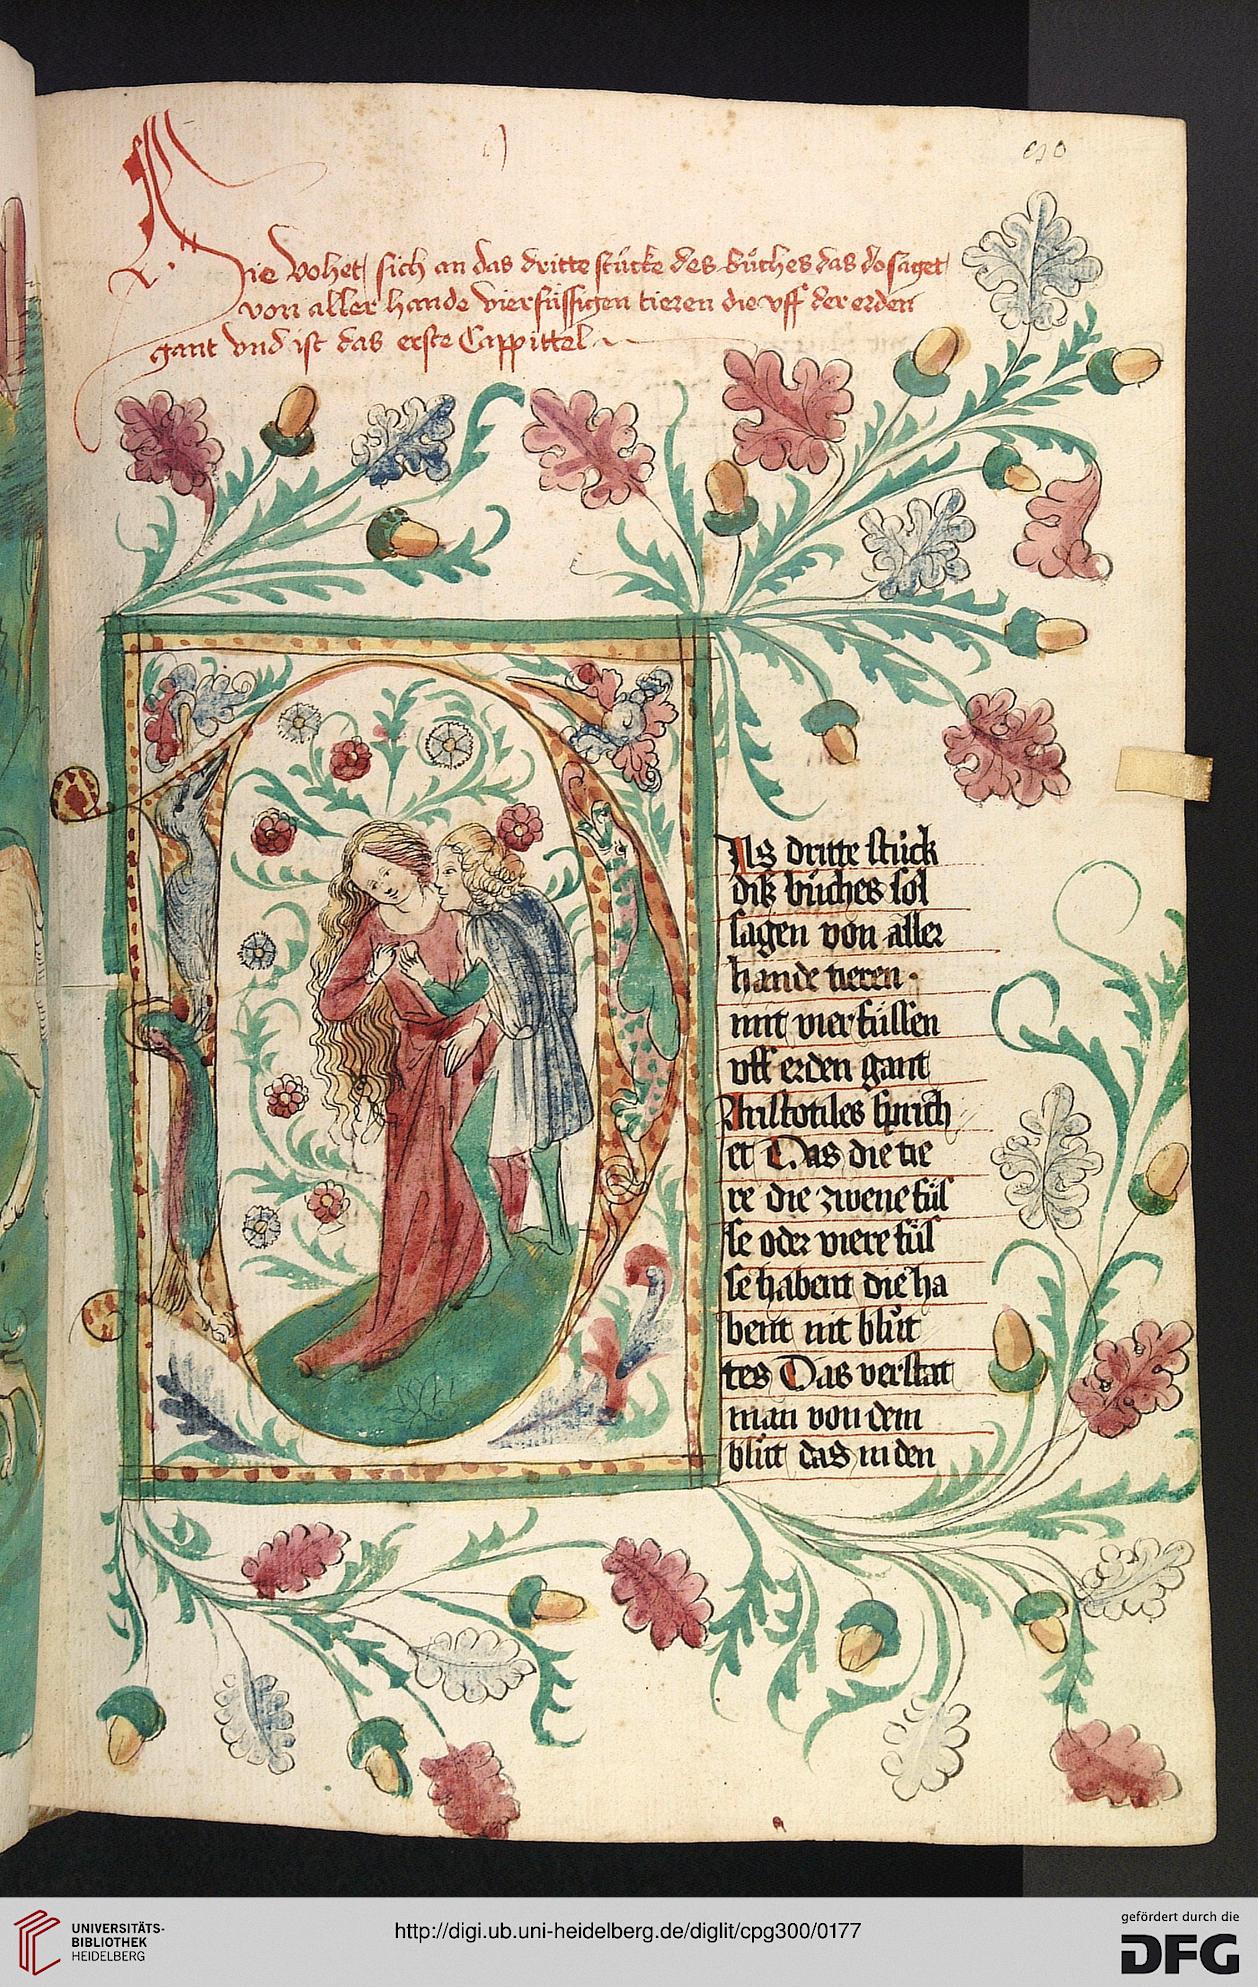 Hie vohet sich an das dritte stücke des bůches das do saget
von aller hande vierfüssigen tieren die vff der erden
gant vnd ist das erste Cappittel
Das dritte stück
dis bůches sol
sagen von aller
hande tieren
mit vier füssen
vff erden gant
Aristotiles sprich
et Das die tie
re die zwene füs
se oder viere füs
se habent die ha
bent nit blůt
tes Das verstat
man von dem
blůt das in den
UNIVERSITÄTS-
BIBLIOTHEK
HEIDELBERG
http://digi.ub.uni-heidelberg.de/diglit/cpg300/0177
gefördert durch die
DFG